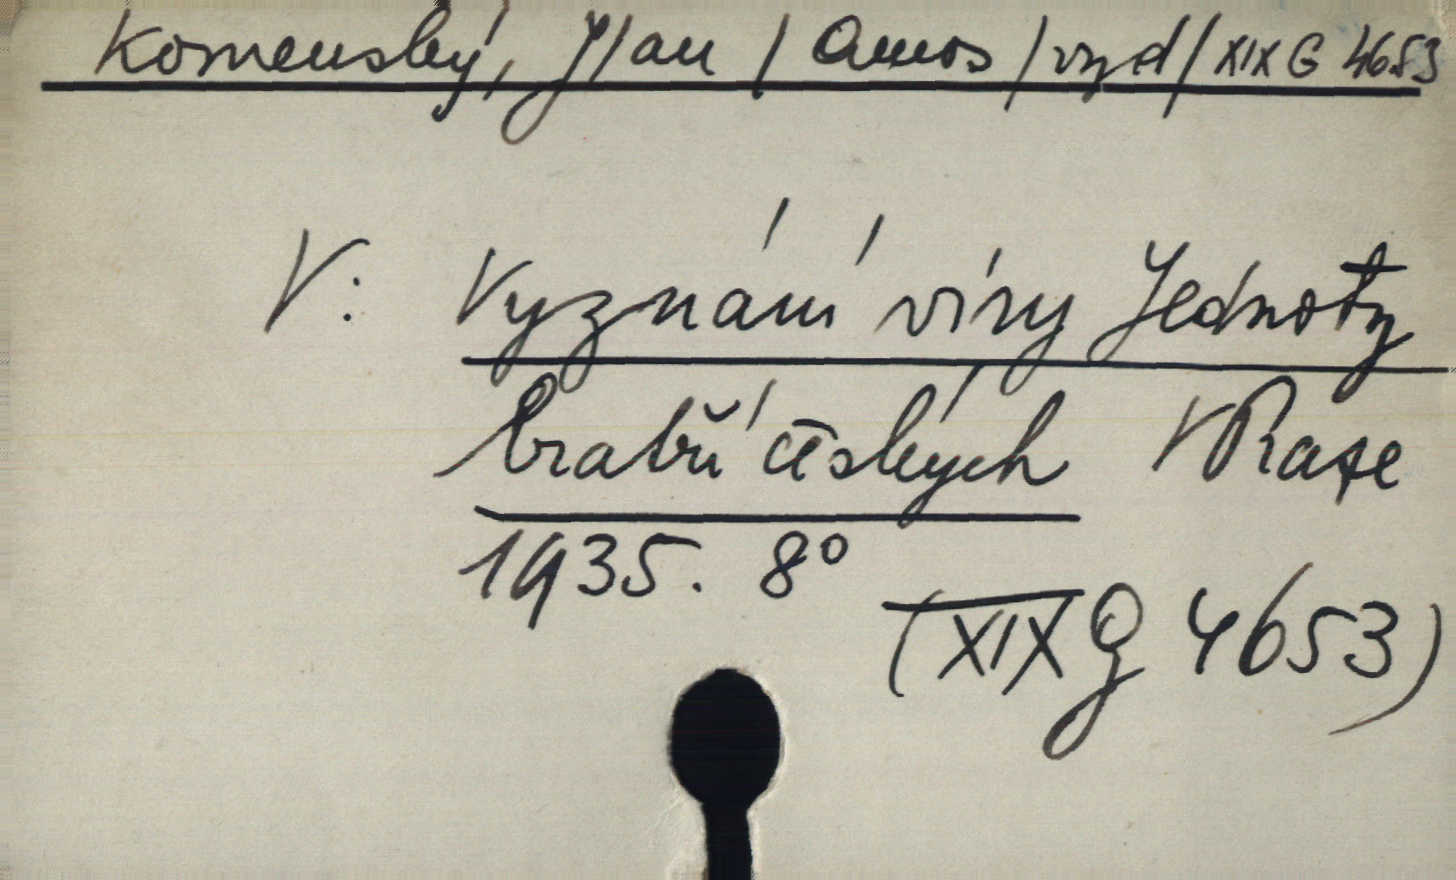 Komenský, J/an/ Amos /vyd/ XIX G 4653
V: Vyznání víry Jednoty
bratří českých V Praze
1935. 8°
(XIX G 4653)